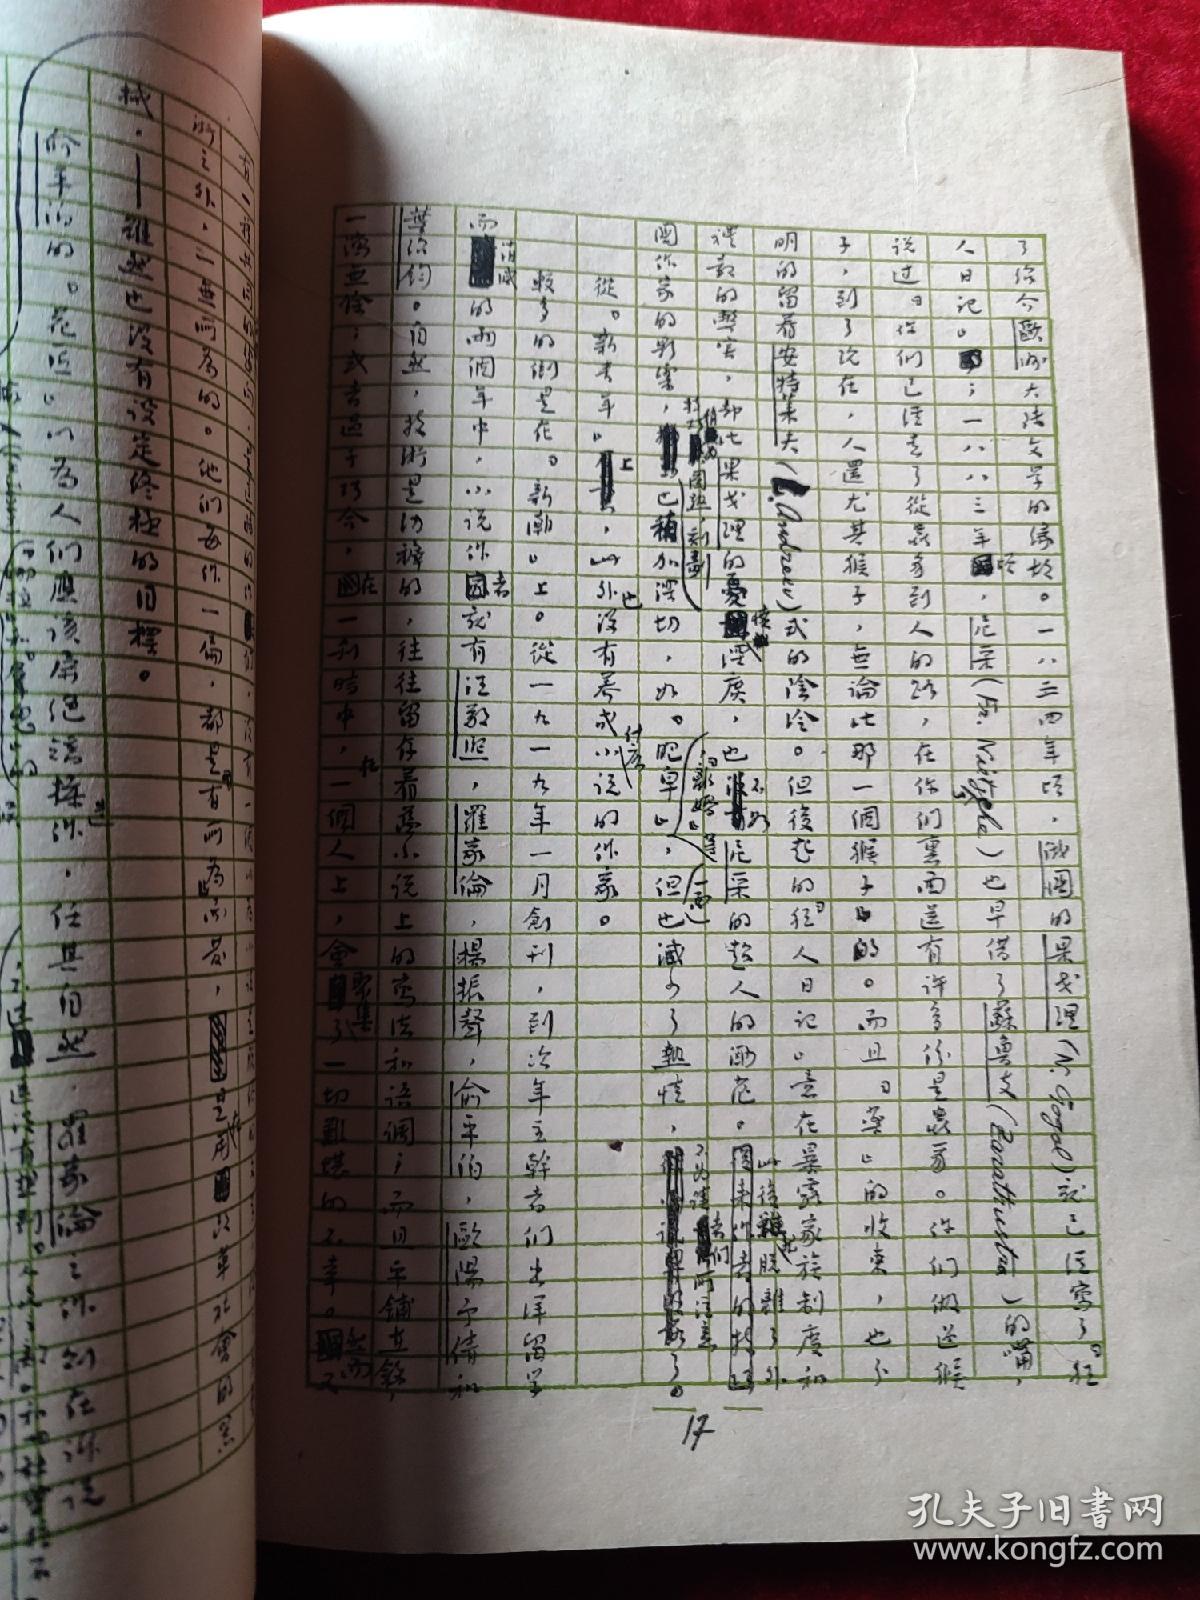 了绍介歐洲大陸文学的緣故。一八三四年頃，俄國的果戈理(N. Gogol)就已経寫了「狂
人日記」；一八八三年頃，尼采(Fr. Nietzsche)也早借了蘇魯支(Zarathustra)的嘴，
说过「你们已経走了從蟲豸到人的路，在你们裏面還有许多份是蟲豸。你们做过猴
子，到了现在，人還尤其猴子，無論比那一個猴子」的。而且「藥」的收束，也分
明的留着安特萊夫(L. Andreev)式的陰冷。但後起的「狂人日記」意在暴露家族制度和
禮教的弊害，却比果戈理的憂憤深廣，也不如尼采的超人的渺茫。此後雖脱離了外
國作家的影響，技巧稍為圓熟，刻劃也稍加深切，如「肥皂」，「離婚」等，但一面也减少了熱情，不为讀者们所注意了。
從「新青年」上，此外也没有養成什麽小说的作家。
較多的倒是在「新潮」上。從一九一九年一月創刊，到次年主幹者们出洋留学
而消滅的兩個年中，小说作者就有汪敬熙，羅家倫，楊振聲，俞平伯，歐陽予倩和
葉绍鈞。自然，技術是幼稚的，往往留存着舊小说上的寫法和语調；而且平鋪直叙，
一瀉無餘；或者過于巧合，在一刹時中，在一個人上，會聚集了一切難堪的不幸。然而又
17
所之外，一無所為的。他们每作一篇，都是有所為而發，是在用以改革社會的器
械，——雖然也没有设定终極的目標。
俞平伯的「花匠」以為人们應该屏绝矯揉造作，任其自然，羅家倫之作則在诉说
孔夫子旧书网
www.kongfz.com